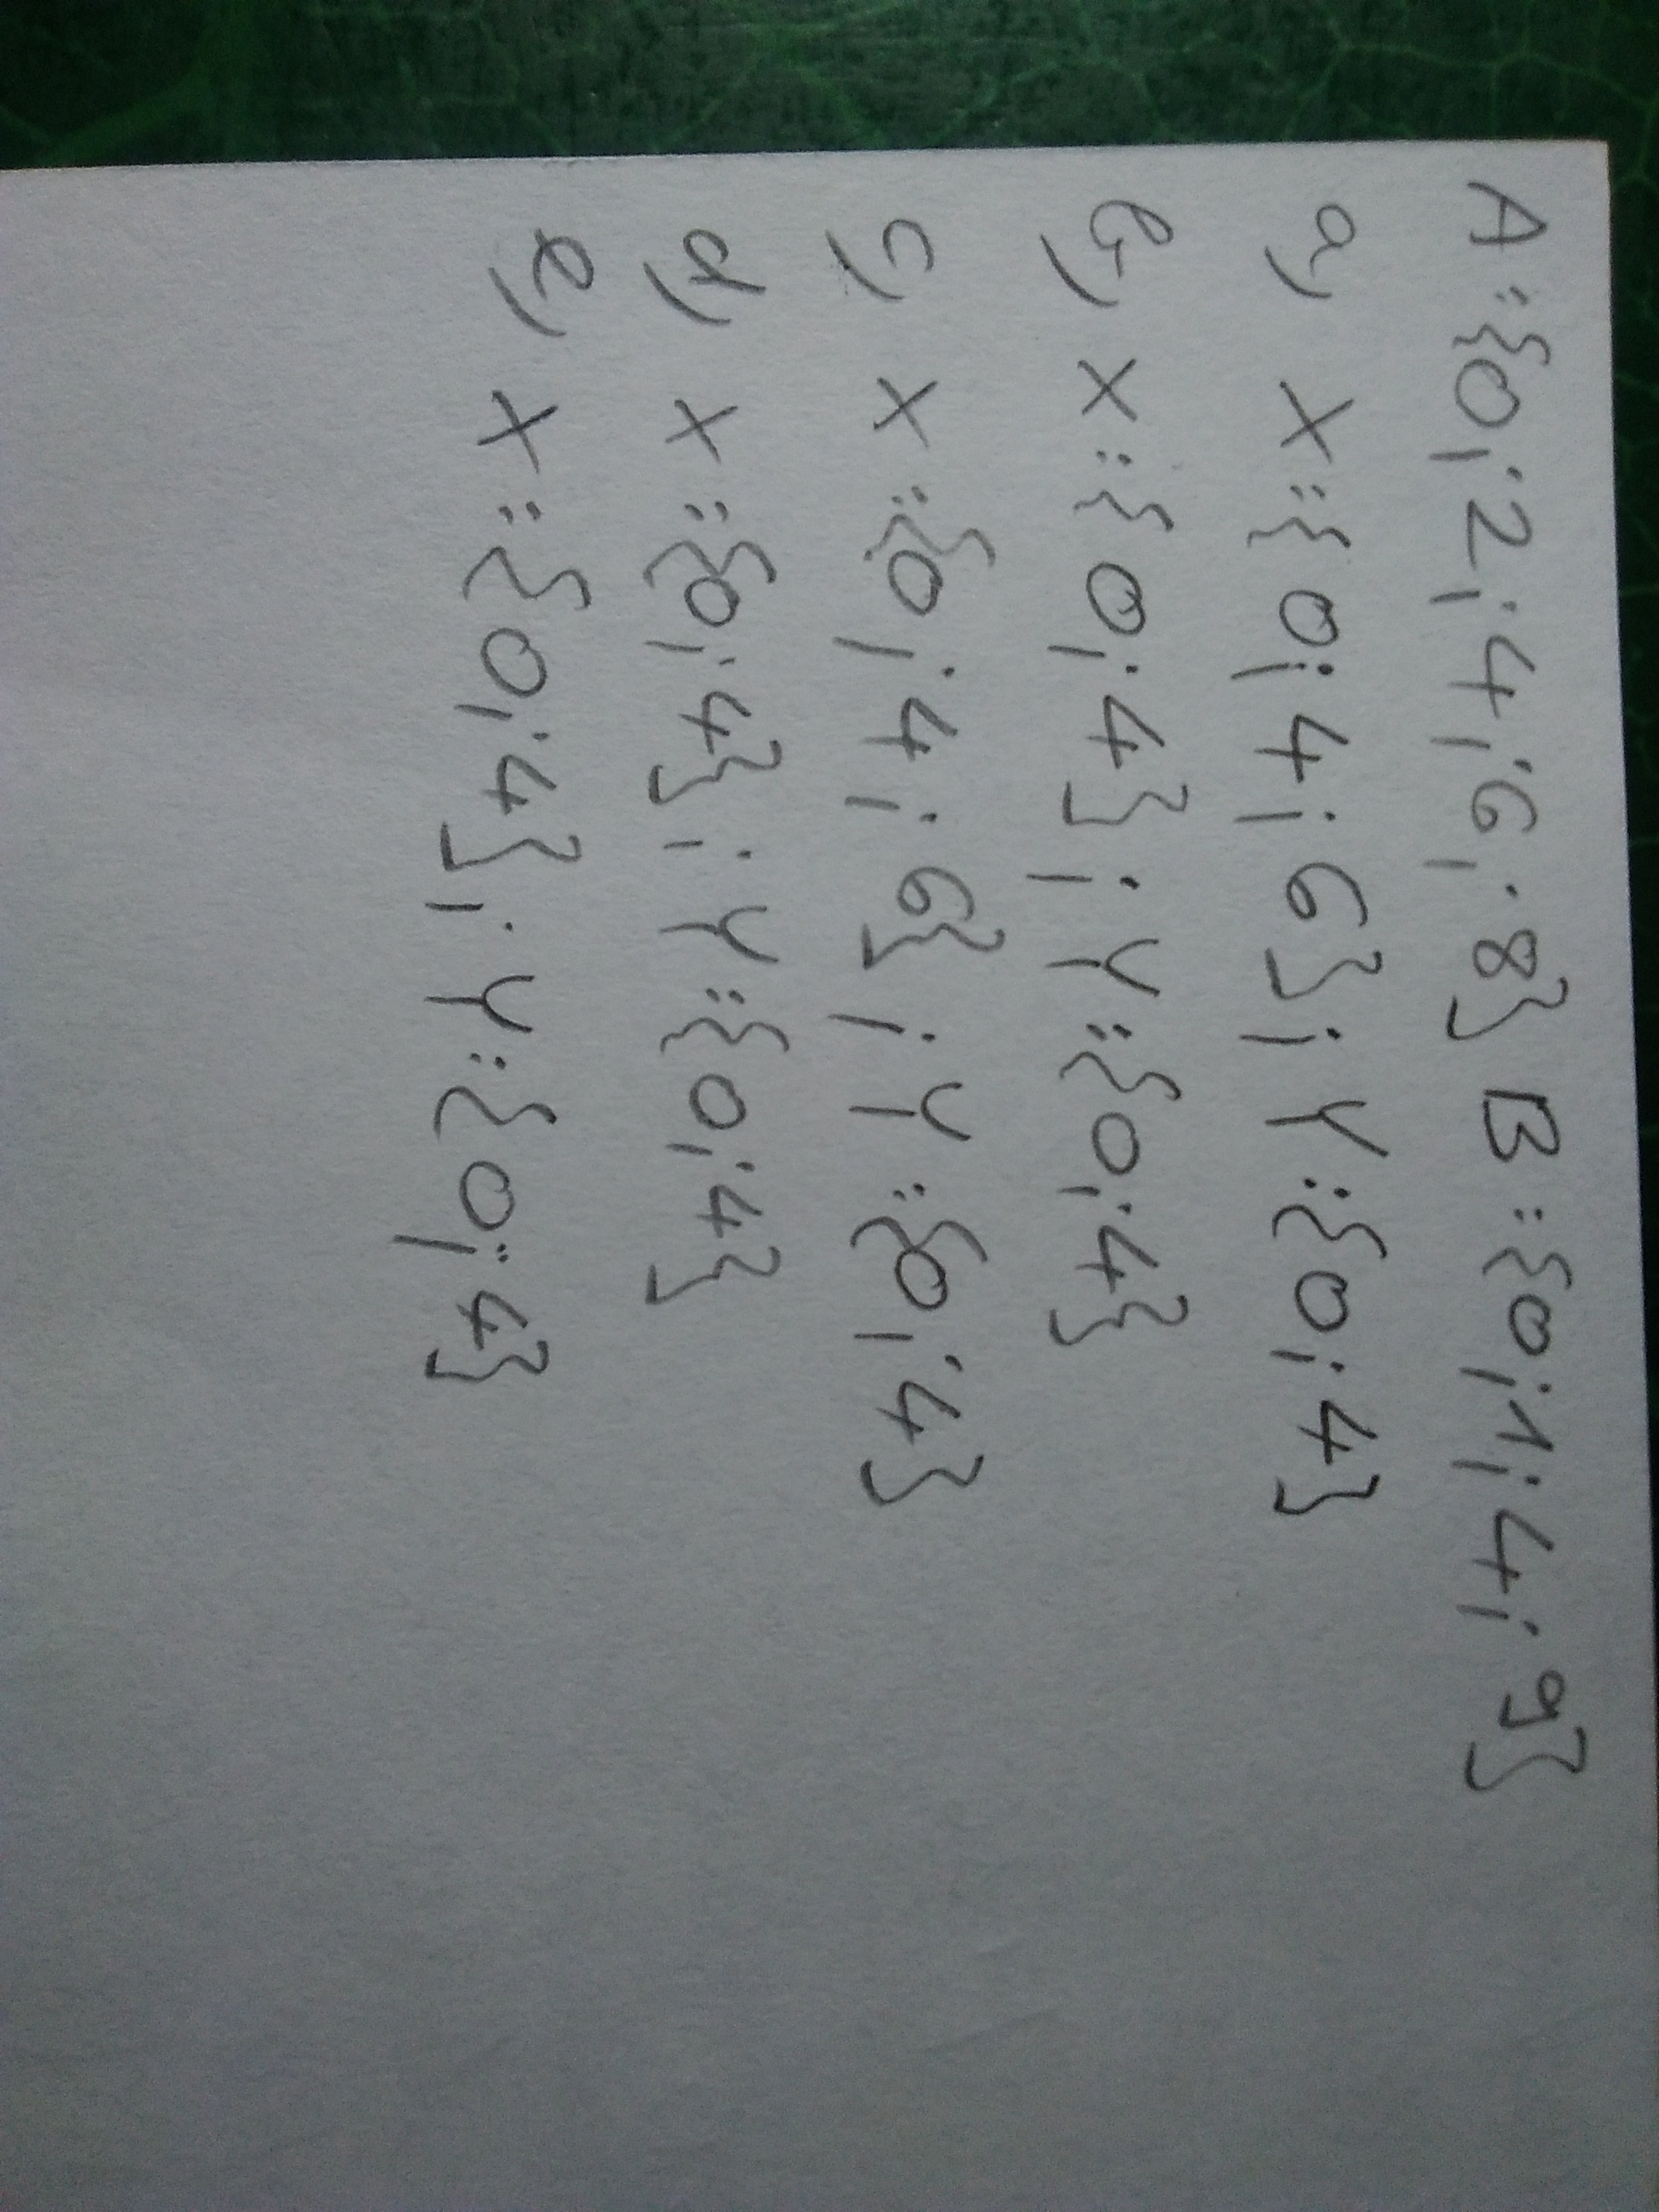 A:{0;2;4;6;8} B:{0;1;4;9}
a) X:{0;4;6}; Y:{0;4}
b) X:{0;4}; Y:{0;4}
c) X:{0;4;6}; Y:{0;4}
d) X:{0;4}; Y:{0;4}
e) X:{0;4}; Y:{0;4}